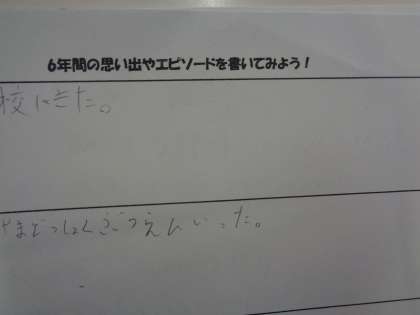 6年間の思い出やエピソードを書いてみよう！
校にきた。
やまどうしょくぶつえんいった。